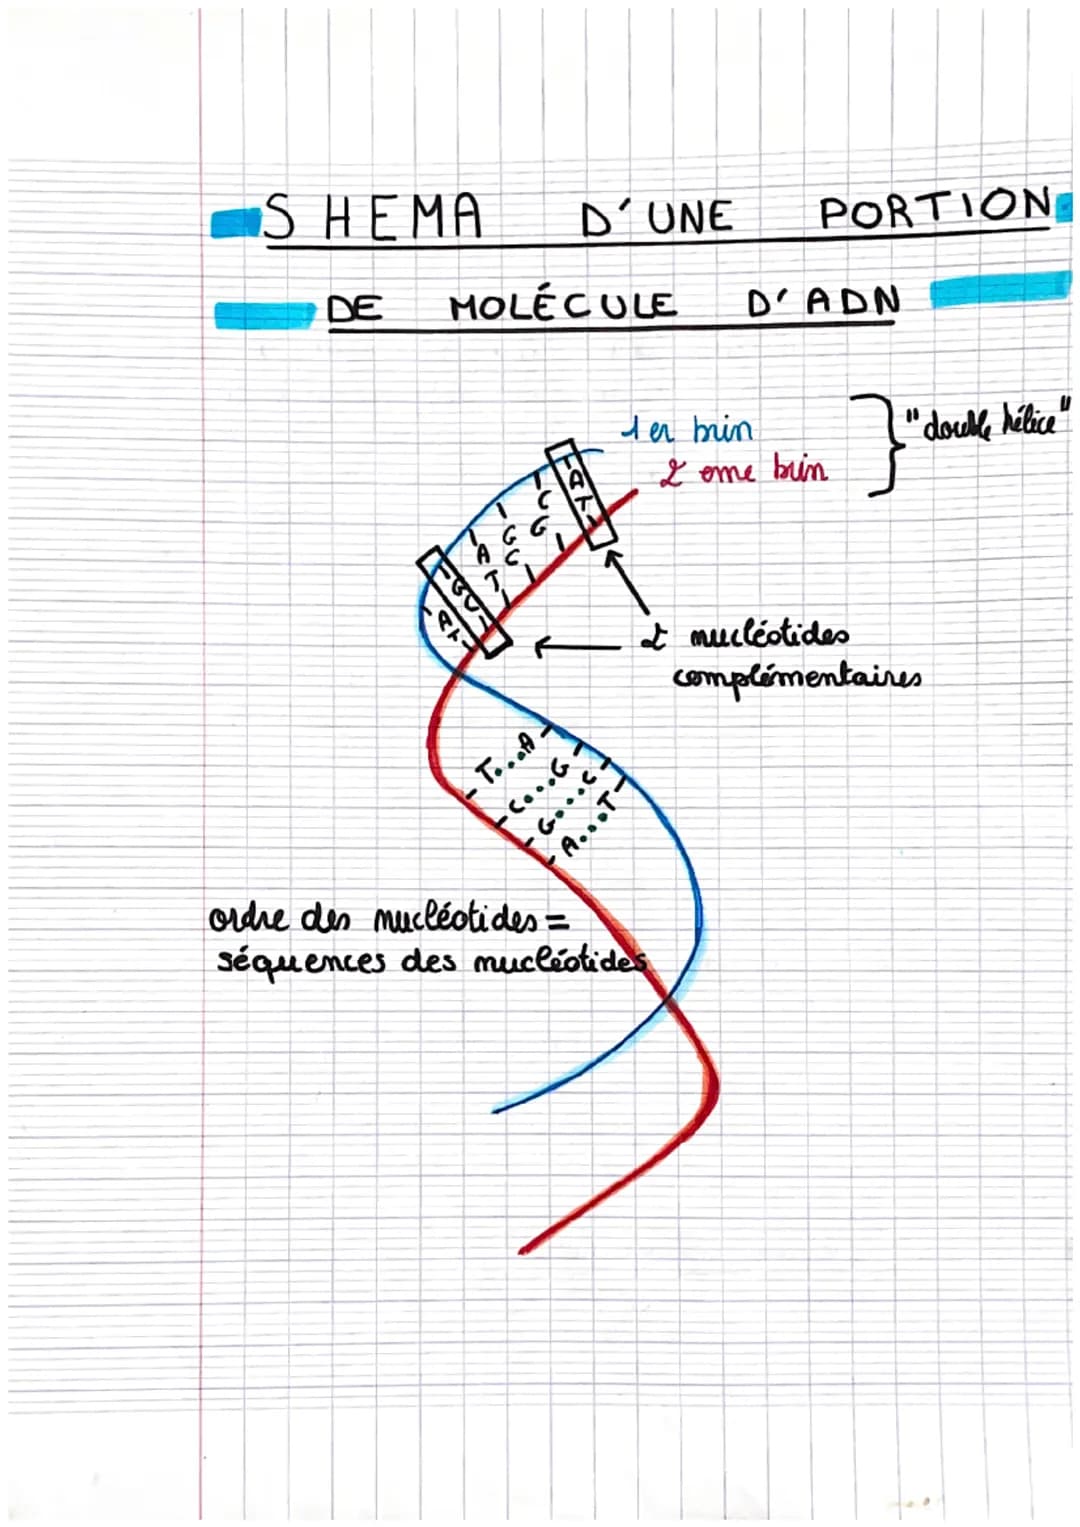 SHEMA D'UNE PORTION
DE MOLÉCULE D'ADN
1er brin
2 eme brin
"double hélice"
A T
C G
G C
A T
G C
A T
2 nucléotides
complémentaires
A T
G C
C G
T A
ordre des nucléotides =
séquences des nucléotides